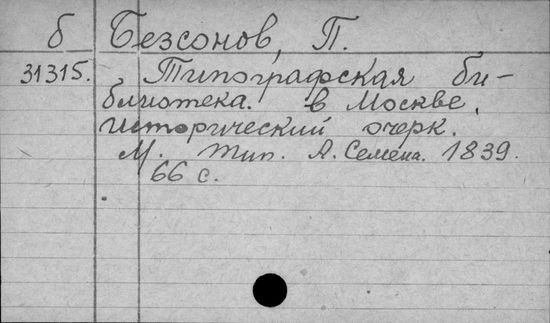 б Безсонов, П.
31315. Типографская би-
блиотека. в Москве.
исторический очерк.
М. тип. А. Семена. 1839.
66 с.